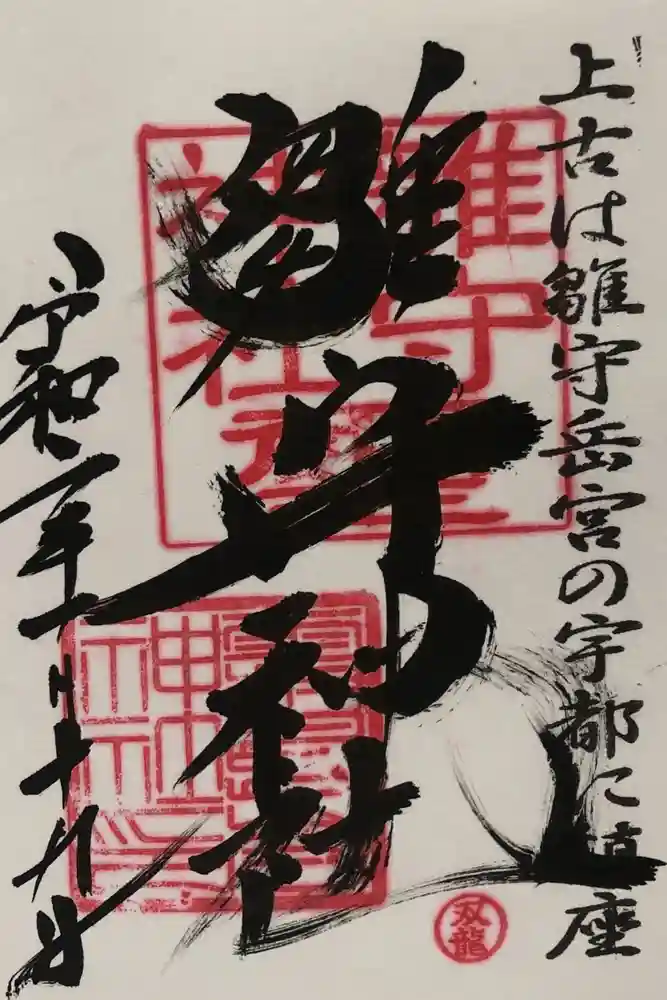 上古は雛守岳宮の宇都に鎮座
雛守神社
令和二年
十九日
雛守
神社
双龍